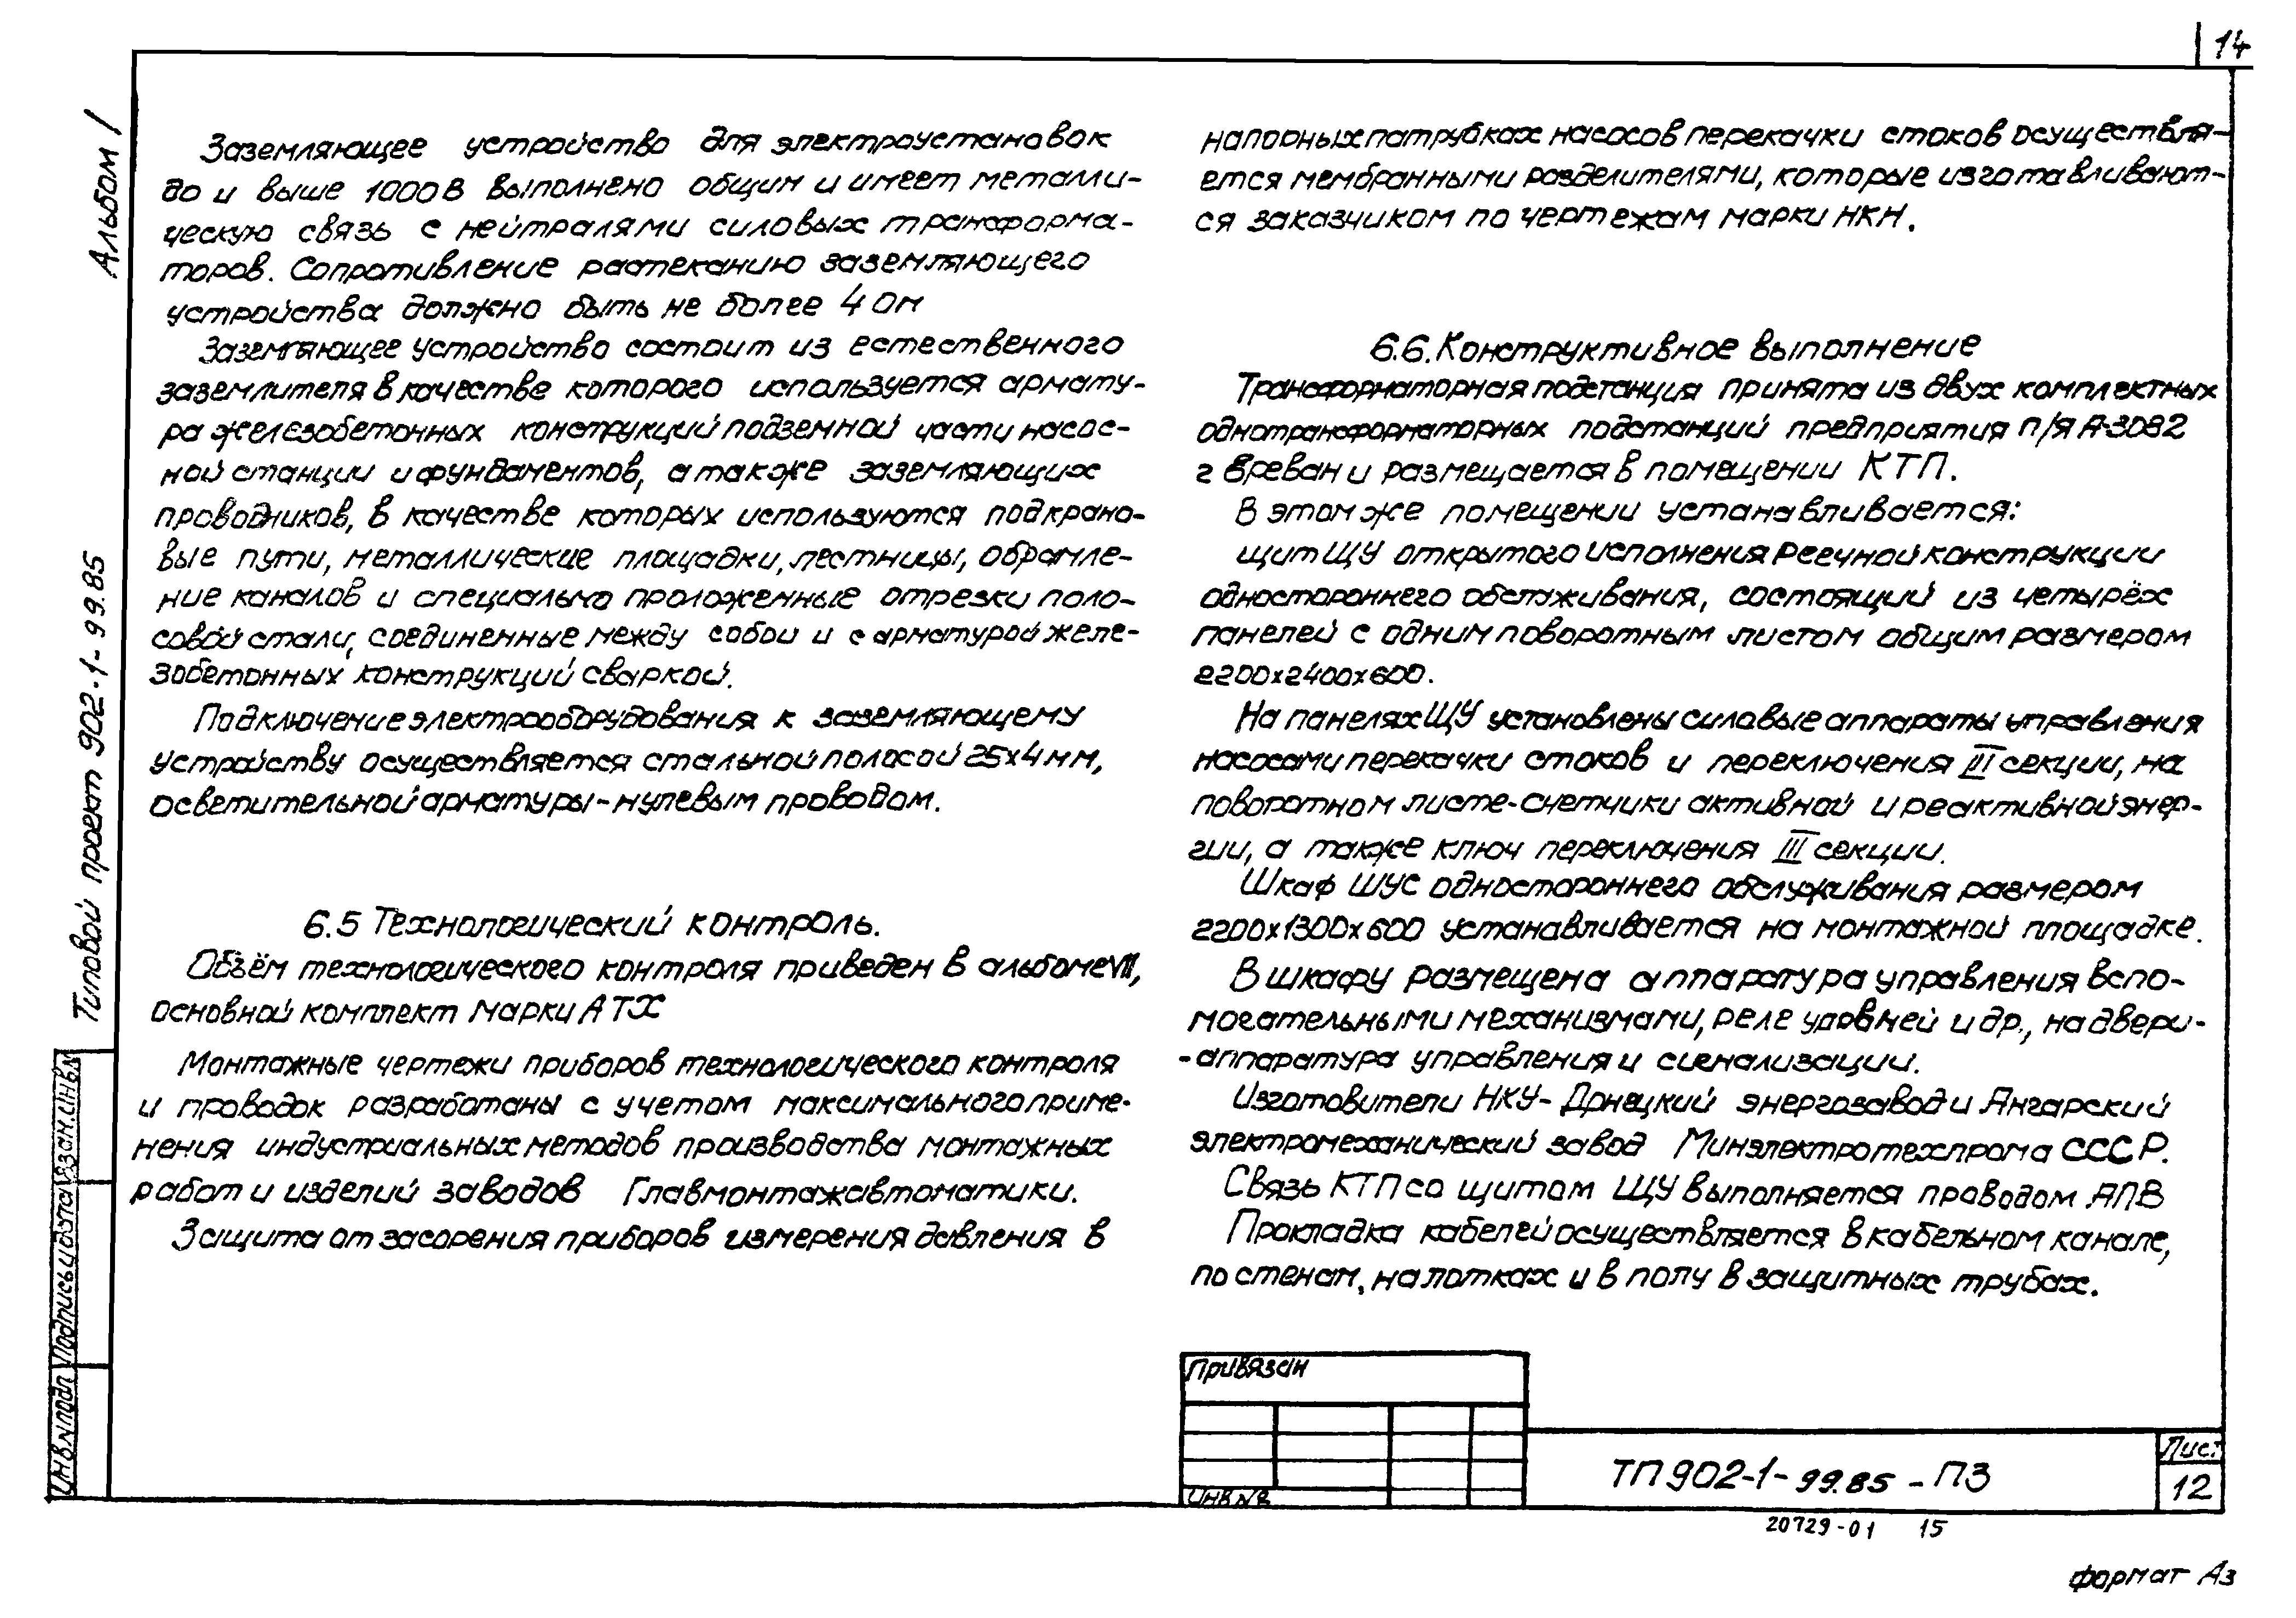 14
Альбом I
Типовой проект 902-1-99.85
Заземляющее устройство для электроустановок
до и выше 1000 В выполнено общим и имеет металли-
ческую связь с нейтралями силовых трансформа-
торов. Сопротивление растеканию заземляющего
устройства должно быть не более 4 Ом
Заземляющее устройство состоит из естественного
заземлителя в качестве которого используется армату-
ра железобетонных конструкций подземной части насос-
ной станции и фундаментов, а также заземляющих
проводников, в качестве которых используются подкрано-
вые пути, металлические площадки, лестницы, обрамле-
ние каналов и специально проложенные отрезки поло-
совой стали, соединенные между собой и с арматурой желе-
зобетонных конструкций сваркой.
Подключение электрооборудования к заземляющему
устройству осуществляется стальной полосой 25х4 мм,
осветительной арматуры - нулевым проводом.
6.5 Технологический контроль.
Объём технологического контроля приведен в альбоме VII,
основной комплект марки АТХ
Монтажные чертежи приборов технологического контроля
и проводок разработаны с учетом максимального приме-
нения индустриальных методов производства монтажных
работ и изделий заводов Главмонтажавтоматики.
Защита от засорения приборов измерения давления в
напорных патрубках насосов перекачки стоков осуществля-
ется мембранными разделителями, которые изготавливают-
ся заказчиком по чертежам марки НКН.
6.6. Конструктивное выполнение
Трансформаторная подстанция принята из двух комплектных
однотрансформаторных подстанций предприятия п/я А-3082
г Ереван и размещается в помещении КТП.
В этом же помещении устанавливается:
щит ЩУ открытого исполнения реечной конструкции
одностороннего обслуживания, состоящий из четырёх
панелей с одним поворотным листом общим размером
2200х2400х600.
На панелях ЩУ установлены силовые аппараты управления
насосами перекачки стоков и переключения III секции, на
поворотном листе - счетчики активной и реактивной энер-
гии, а также ключ переключения III секции.
Шкаф ШУС одностороннего обслуживания размером
2200х1300х600 устанавливается на монтажной площадке.
В шкафу размещена аппаратура управления вспо-
могательными механизмами, реле уровней и др., на двери-
- аппаратура управления и сигнализации.
Изготовители НКУ - Донецкий энергозавод и Ангарский
электромеханический завод Минэлектротехпрома СССР.
Связь КТП со щитом ЩУ выполняется проводом АПВ
Прокладка кабелей осуществляется в кабельном канале,
по стенам, на лотках и в полу в защитных трубах.
Взам. инв.№
Подпись и дата
Инв № подл
Привязан
Инв №
ТП 902-1-99.85 - ПЗ
Лист
12
20729-01 15
формат А3